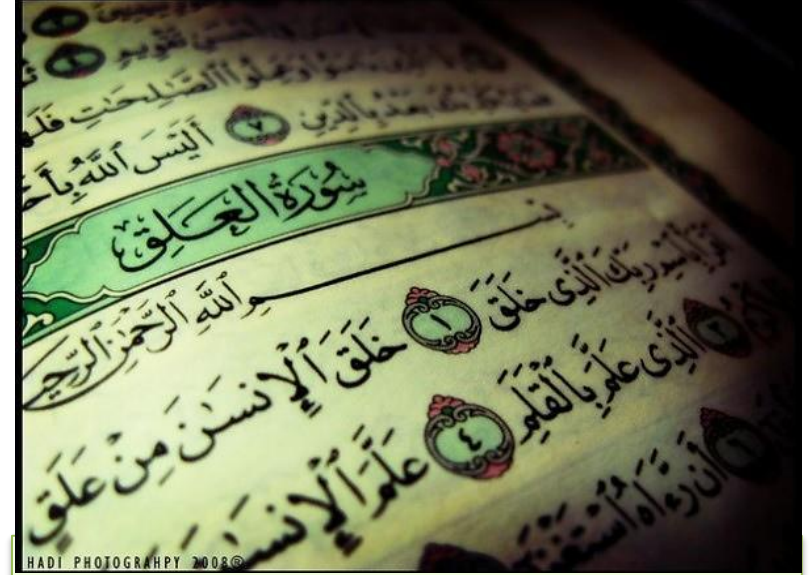 تَقْوِيمٍ ٤
ٱلصَّٰلِحَٰتِ فَلَهُ
بَعْدُ بِٱلدِّينِ ٧ أَلَيْسَ ٱللَّهُ بِأَحْ
سُورَةُ العَلَقِ
بِسْمِ ٱللَّهِ ٱلرَّحْمَٰنِ ٱلرَّحِي
ٱقْرَأْ بِٱسْمِ رَبِّكَ ٱلَّذِى خَلَقَ ١ خَلَقَ ٱلْإِنسَٰنَ مِنْ عَلَقٍ
٣ ٱلَّذِى عَلَّمَ بِٱلْقَلَمِ ٤ عَلَّمَ ٱلْإِنسَٰنَ
٦ أَن رَّءَاهُ ٱسْتَغْنَىٰٓ
HADI PHOTOGRAHPY 2008®